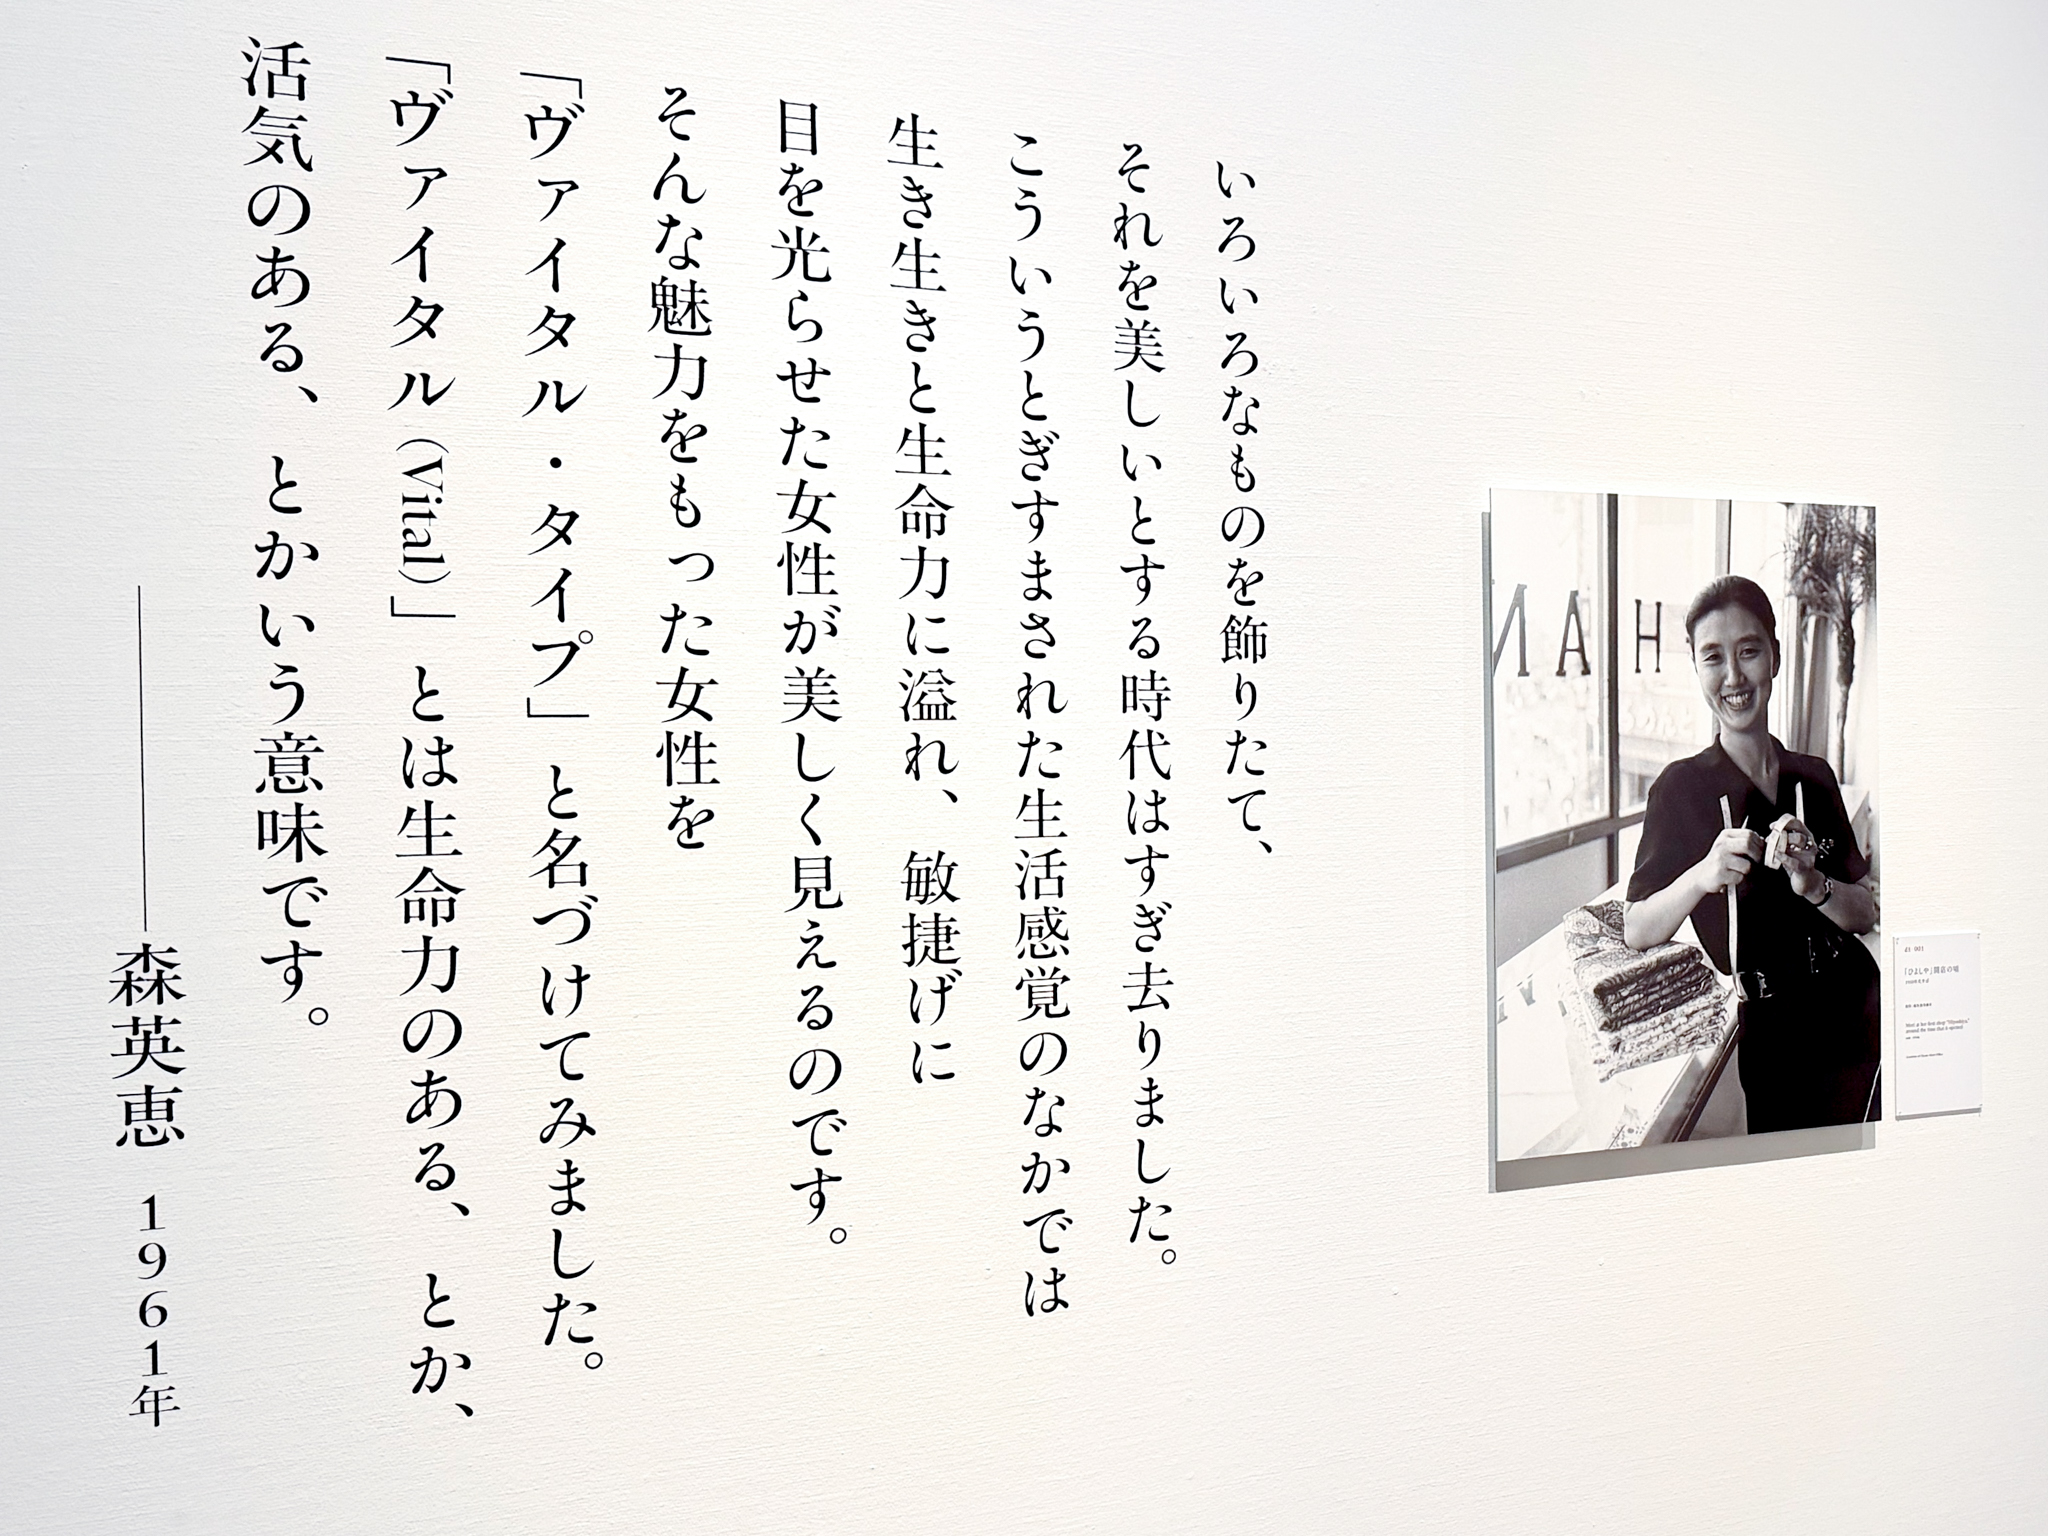 いろいろなものを飾りたて、
それを美しいとする時代はすぎ去りました。
こういうとぎすまされた生活感覚のなかでは
生き生きと生命力に溢れ、敏捷げに
目を光らせた女性が美しく見えるのです。
そんな魅力をもった女性を
「ヴァイタル・タイプ」と名づけてみました。
「ヴァイタル(Vital)」とは生命力のある、とか、
活気のある、とかいう意味です。
——森英恵 1961年
HAN
「ひよしや」開店の頃
Mori at her first shop "Hiyoshiya,"
around the time that it opened